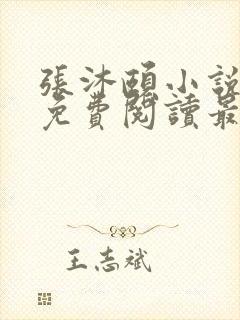 張沐頤小說
免費閱讀最
王志斌